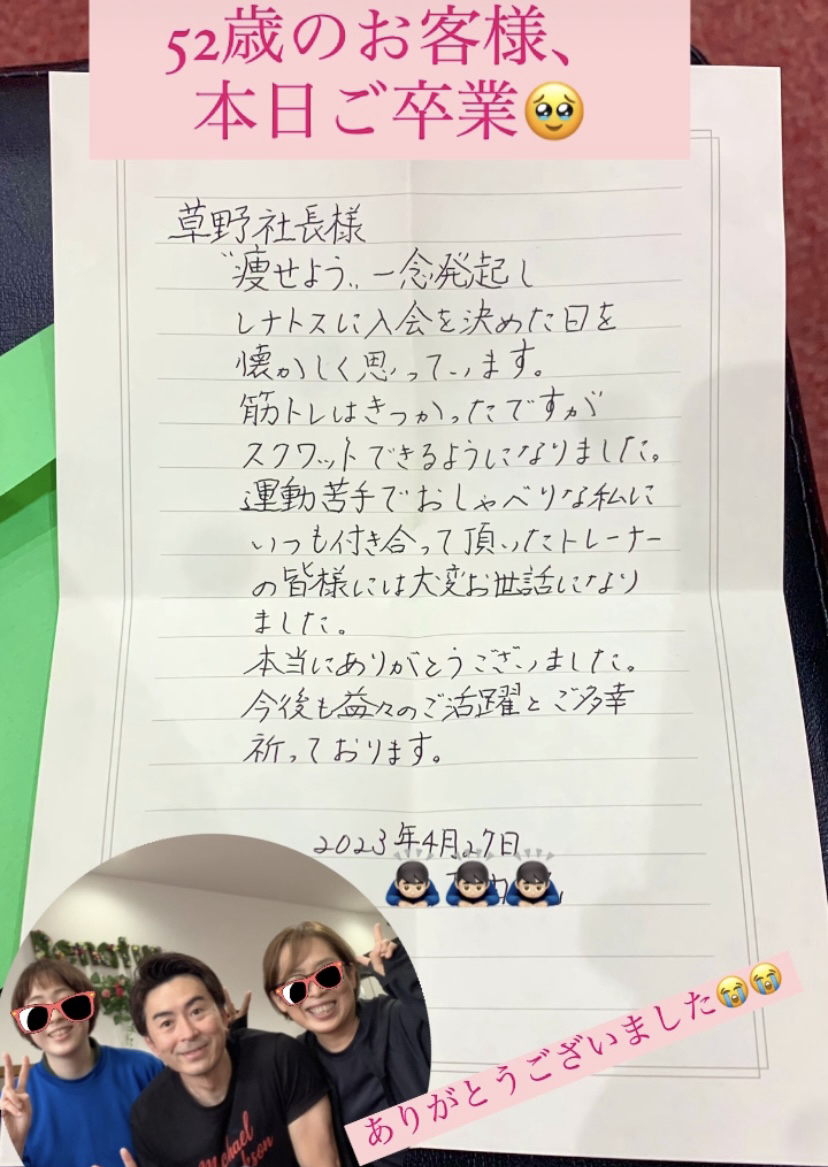 52歳のお客様、
本日ご卒業🥹
草野社長様
"痩せよう" 一念発起し
レナトスに入会を決めた日を
懐かしく思っています。
筋トレはきつかったですが
スクワットできるようになりました。
運動苦手でおしゃべりな私に
いつも付き合って頂いたトレーナー
の皆様には大変お世話になり
ました。
本当にありがとうございました。
今後も益々のご活躍とご多幸
祈っております。
2023年4月27日
ありがとうございました😭😭
Michael